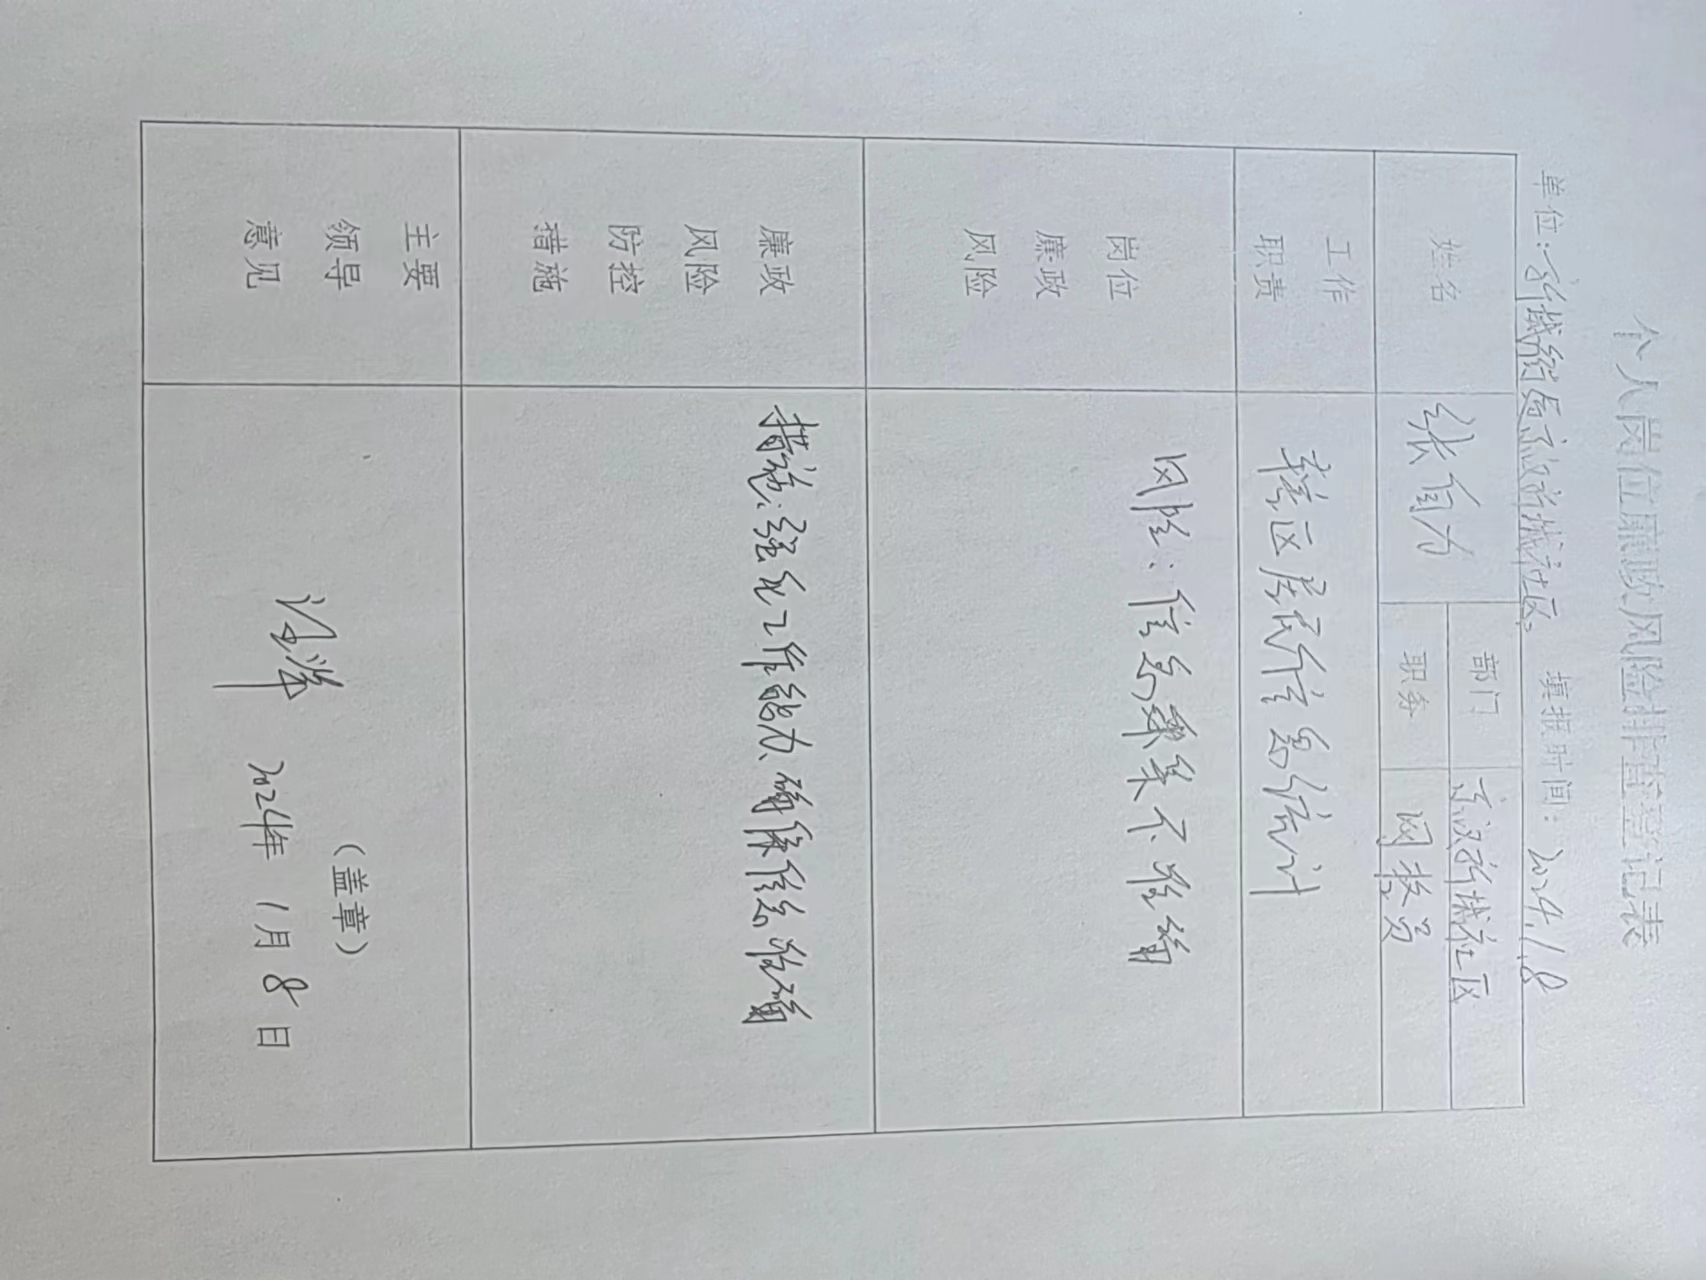 个人岗位廉政风险排查登记表
单位:新城街局京汉新城社区 填报时间: 2024.1.8
姓名 张自力 部门 京汉新城社区
职务 网格员
工作职责 辖区居民信息统计
岗位廉政风险 风险:信息采集不准确
廉政风险防控措施 措施:强化工作能力、确保信息准确
主要领导意见
(盖章)
2024年 1月 8日